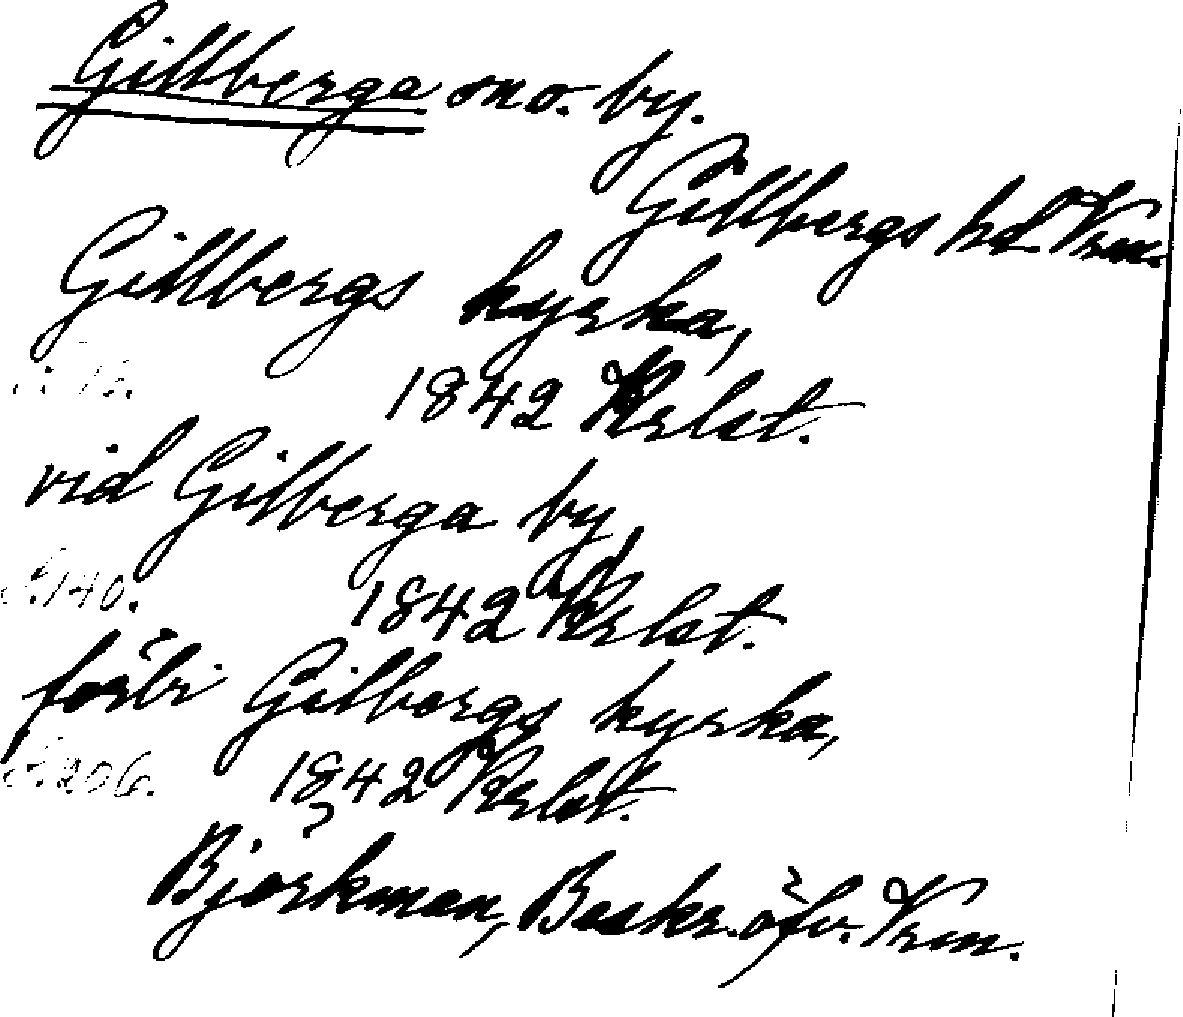 Gillberga sno. by.
Gillbergs hd Vrm.
Gillbergs kyrka,
1842 Krlst.
vid Gilberga by,
S. 140. 1842 Krlst.
förbi Gilbergs kyrka,
S. 206. 1842 Krlst.
Björkman, Beskr. öfv. Vrm.